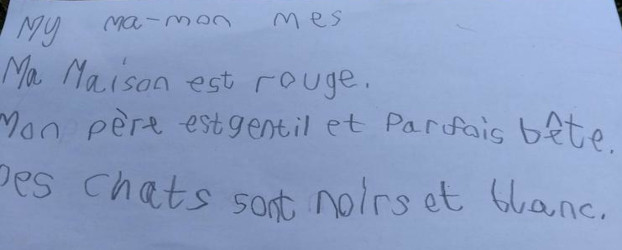 My ma-mon mes
Ma Maison est rouge.
Mon père est gentil et Parfois bête.
Des chats sont noirs et blanc.